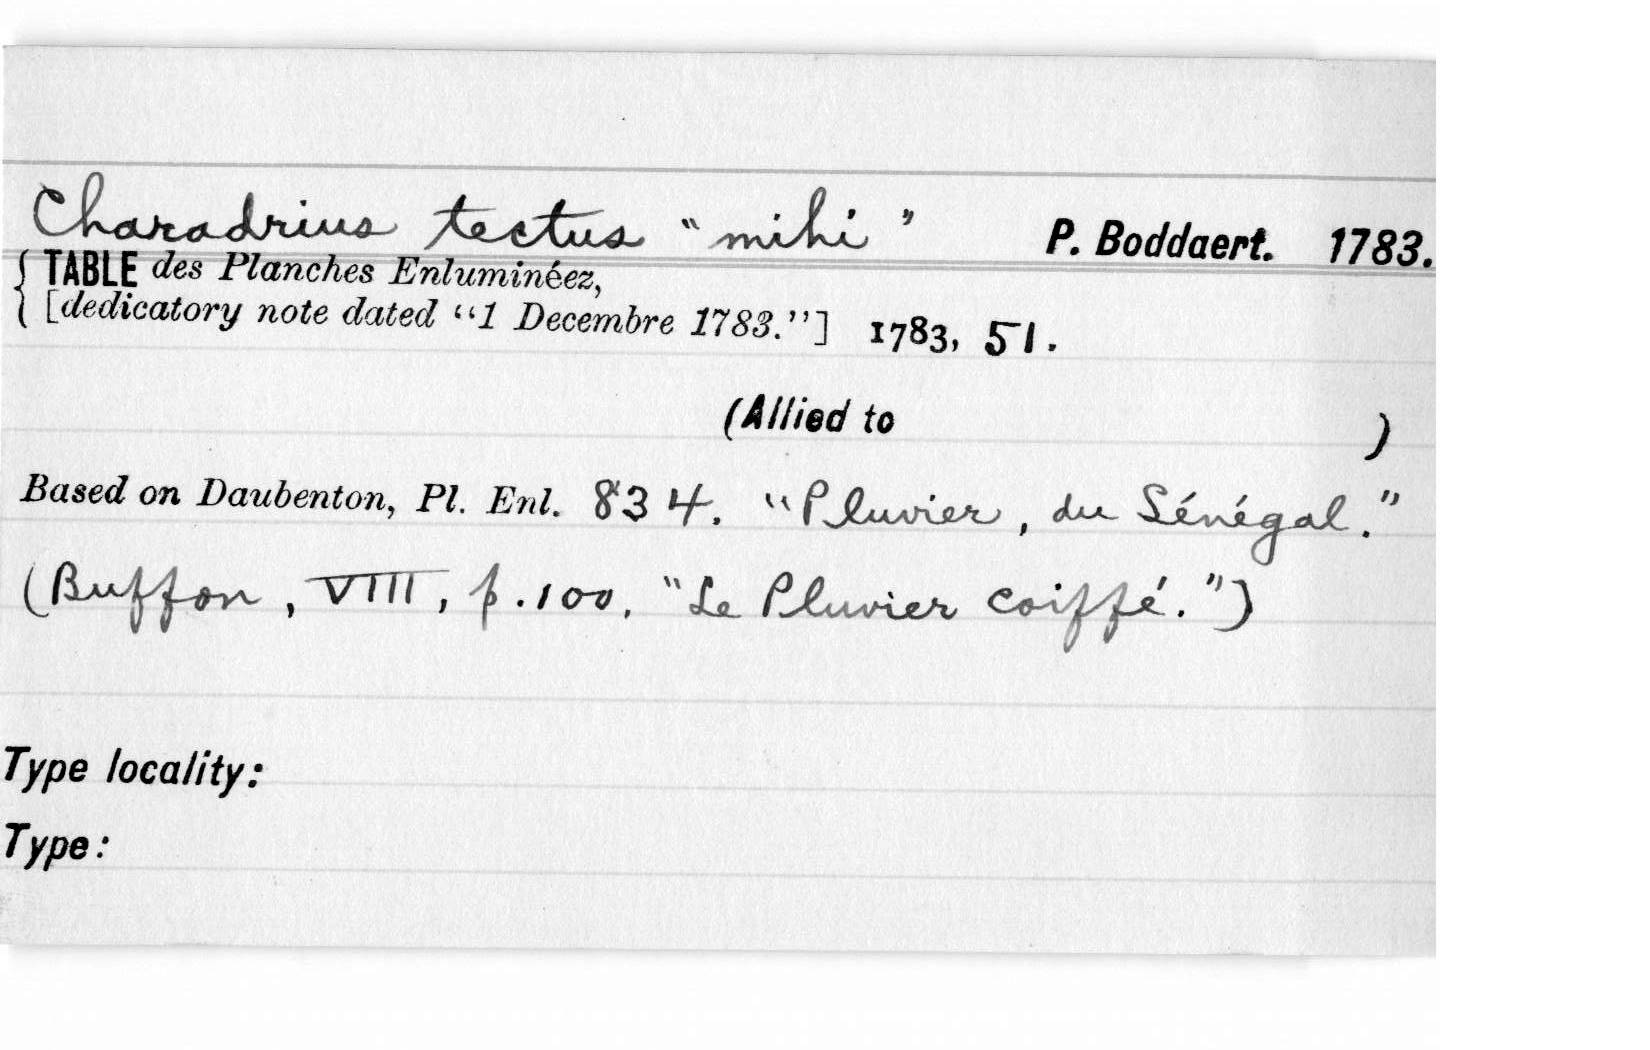 Charadrius tectus "mihi" P. Boddaert. 1783.
TABLE des Planches Enluminéez,
[dedicatory note dated "1 Decembre 1783."] 1783, 51.
(Allied to )
Based on Daubenton, Pl. Enl. 834. "Pluvier, du Sénégal."
(Buffon, VIII, p.100, "Le Pluvier coiffé.")
Type locality:
Type: